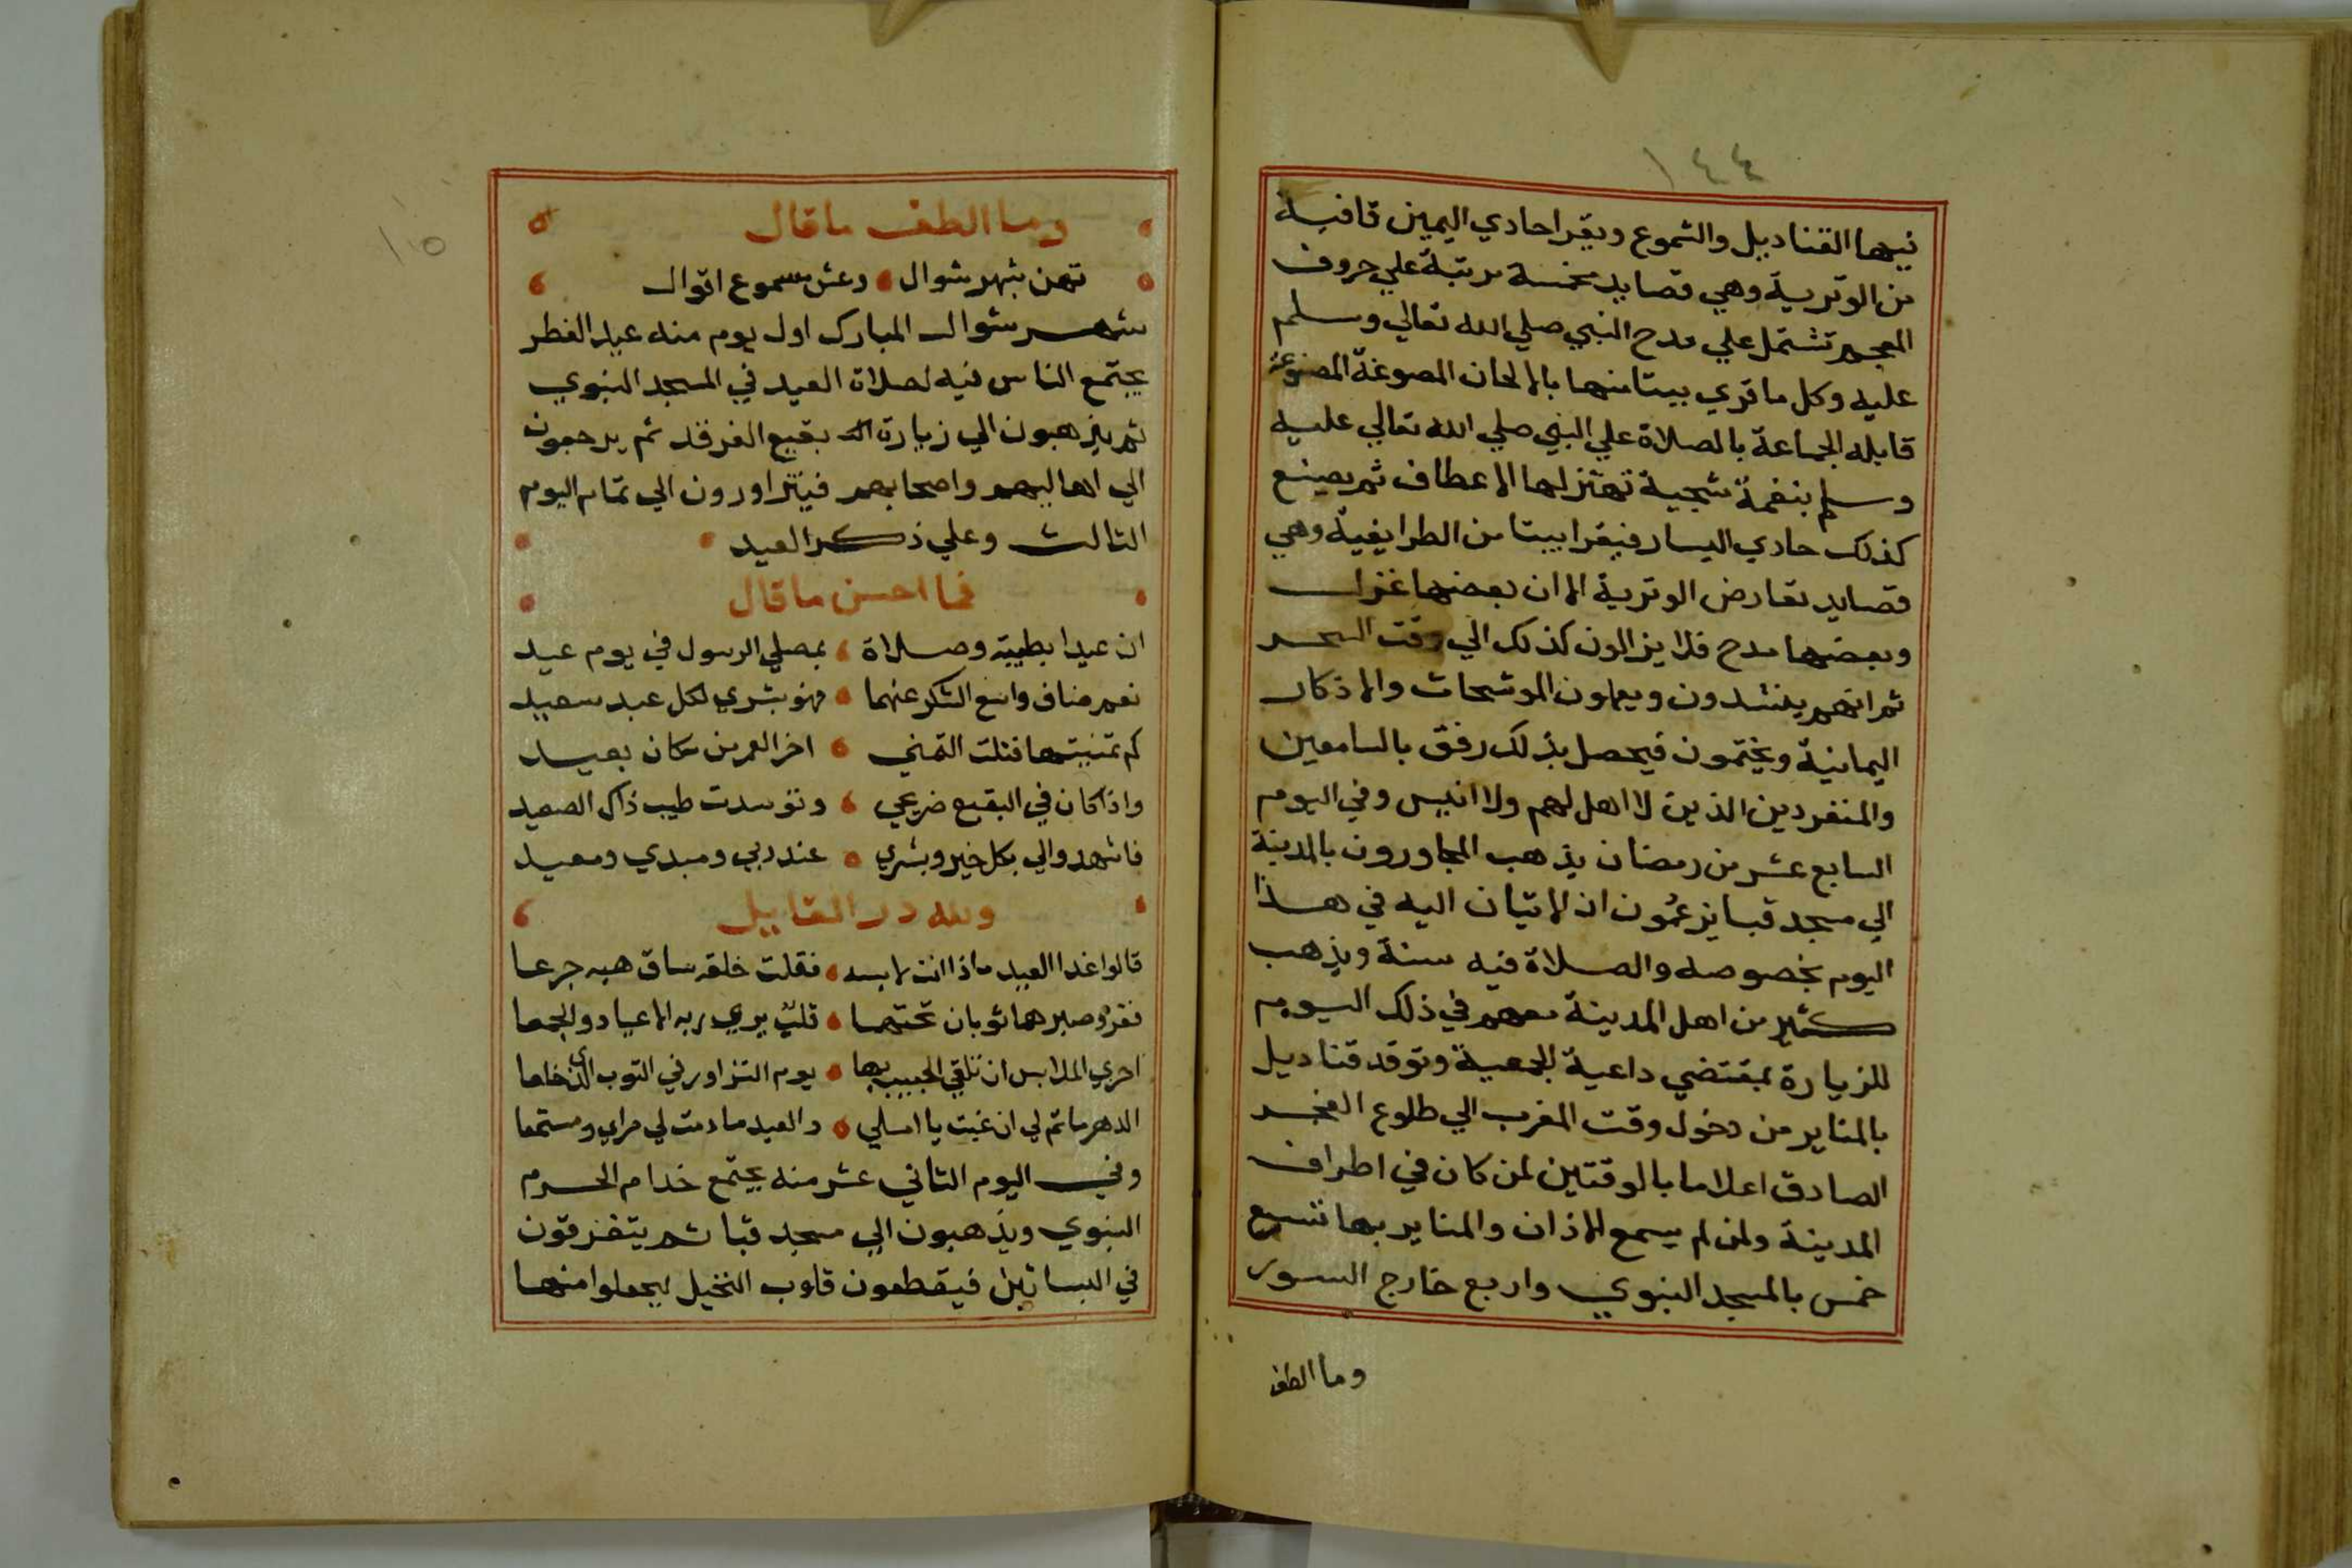 ١٤٤
فيها القناديل والشموع ويقرا حادي اليمين قافية
من الوترية وهي قصايد مخمسة مرتبة علي حروف
المعجم تشتمل علي مدح النبي صلي الله تعالي وسلم
عليه وكل ما قري بيتا منها بالالحان المصوغة المصنوعة
قابله الجماعة بالصلاة علي النبي صلي الله تعالي عليه
وسلم بنغمة شجية تهتز لها الاعطاف ثم يصنع
كذلك حادي اليسار فيقرا بيتا من الطرايفية وهي
قصايد تعارض الوترية الا ان بعضها غزل
وبعضها مدح فلا يزالون كذلك الي وقت السحر
ثم انهم ينشدون ويعملون الموشحات والاذكار
اليمانية ويختمون فيحصل بذلك رفق بالسامعين
والمنفردين الذين لا اهل لهم ولا انيس وفي اليوم
السابع عشر من رمضان يذهب المجاورون بالمدينة
الي مسجد قبا يزعمُون ان الاتيان اليه في هذا
اليوم بخصوصه والصلاة فيه سنة ويذهب
كثير من اهل المدينة معهم في ذلك اليوم
للزيارة بمقتضي داعية الجمعية وتوقد قناديل
بالمناير من دخول وقت المغرب الي طلوع الفجر
الصادق اعلاما بالوقتين لمن كان في اطراف
المدينة ولمن لم يسمع الاذان والمناير بها تسع
خمس بالمسجد النبوي واربع خارج السور
وما الطف
١٤٥
وما الطف ما قال
تهن بشهر شوال وعش مسموع اقوال
شهر شوال المبارك اول يوم منه عيد الفطر
يجتمع الناس فيه لصلاة العيد في المسجد النبوي
ثم يذهبون الي زيارة بقيع الغرقد ثم يرجعون
الي اهاليهم واصحابهم فيتزاورون الي تمام اليوم
الثالث وعلي ذكر العيد
فما احسن ما قال
ان عيدا بطيبة وصلاة بمصلي الرسول في يوم عيد
نعم ضاق واسع الشكر عنها فهو بشري لكل عبد سعيد
كم تمنيتها فنلت التمني اخر العمر من مكان بعيد
واذا كان في البقيع ضريحي وتوسدت طيب ذاك الصعيد
فاشهدوا لي بكل خير وبشري عند ربي ومبدي ومعيد
ولله در القايل
قالوا غدا العيد ماذا انت لابسه فقلت خلقه ساق هبه جرعا
فقر وصبر هما ثوبان تحتهما قلب يري ربه الاعياد والجمعا
احري الملابس ان تلقي الحبيب بها يوم التزاور في الثوب الذي خلعا
الدهر ماتم لي ان غبت يا املي والعيد ما دمت لي مراي ومستمعا
وفي اليوم الثاني عشر منه يجتمع خدام الحرم
النبوي ويذهبون الي مسجد قبا ثم يتفرقون
في البساتين فيقطعون قلوب النخيل ليجعلوا منها